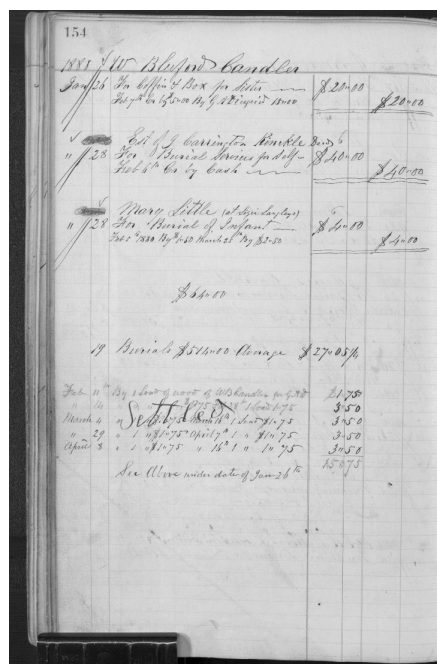 154
1885 W Bluford Candler
Jan 26 For Coffin & Box for Sister $20=00
Feb 7th Cr By 5=00 By G.A. 15=00 $20=00
Est C J Carrington Kinckle Decd
" 28 For Burial Services for Self $40=00
Feb 6th Cr By Cash $40=00
Mary Little (at Lizzie Langleys)
" 28 For Burial of Infant $4=00
Feb 1880 By $1=50 March 26th By $2=50 $4=00
$64=00
19 Burials $514=00 Average $27=05¼
Feb 11th By 1 Load of wood of WB Candler for GAD $1.75
" " " 1.75 28th 1 Load 1.75 3=50
Settled
March 4 " " $1.75 March 16th 1 Load $1=75 3=50
" 29 " 1 " $1=75 April 7th 1 " $1=75 3=50
April 8 " 1 " $1=75 " 16th 1 " 1=75 3=50
15.75
See Above under date of Jan 26th